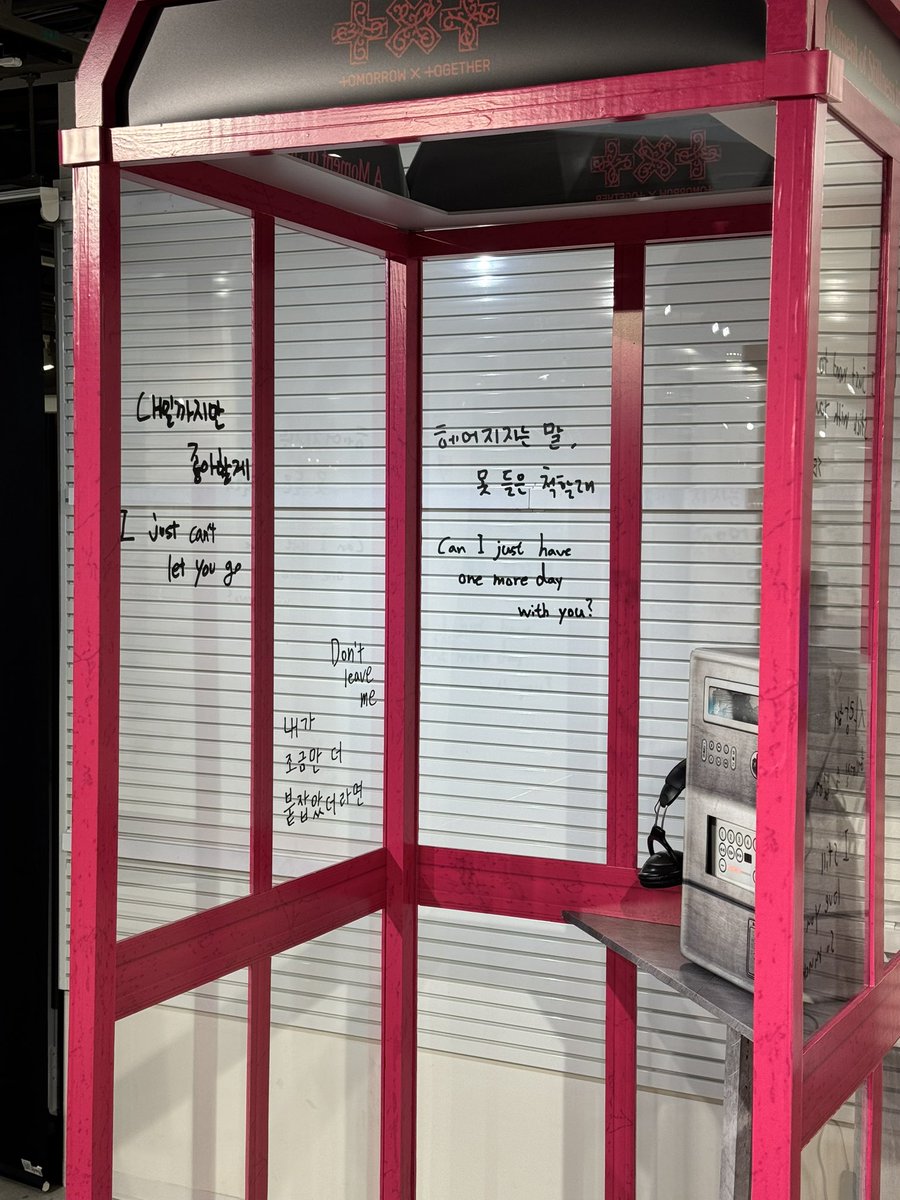 TOMORROW X TOGETHER
A Moment of
TOMORROW X TOGETHER
내일까지만
좋아할게
I just can't
let you go
헤어지자는 말,
못 들은 척할래
Can I just have
one more day
with you?
Don't
leave
me
내가
조금만 더
붙잡았더라면
I still
love you